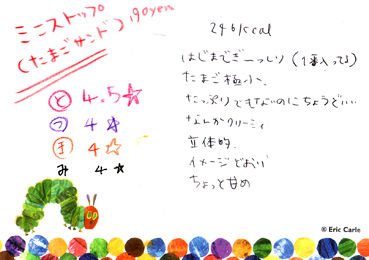 ミニストップ 190yen
(たまごサンド)
と 4.5☆
つ 4☆
ま 4☆
み 4☆
246kcal
はじまでぎーっしり(1番入ってる)
たまご極小、
たっぷりでもないのにちょうどいい
なんかクリーミィ
立体的、
イメージどおり
ちょっと甘め
© Eric Carle